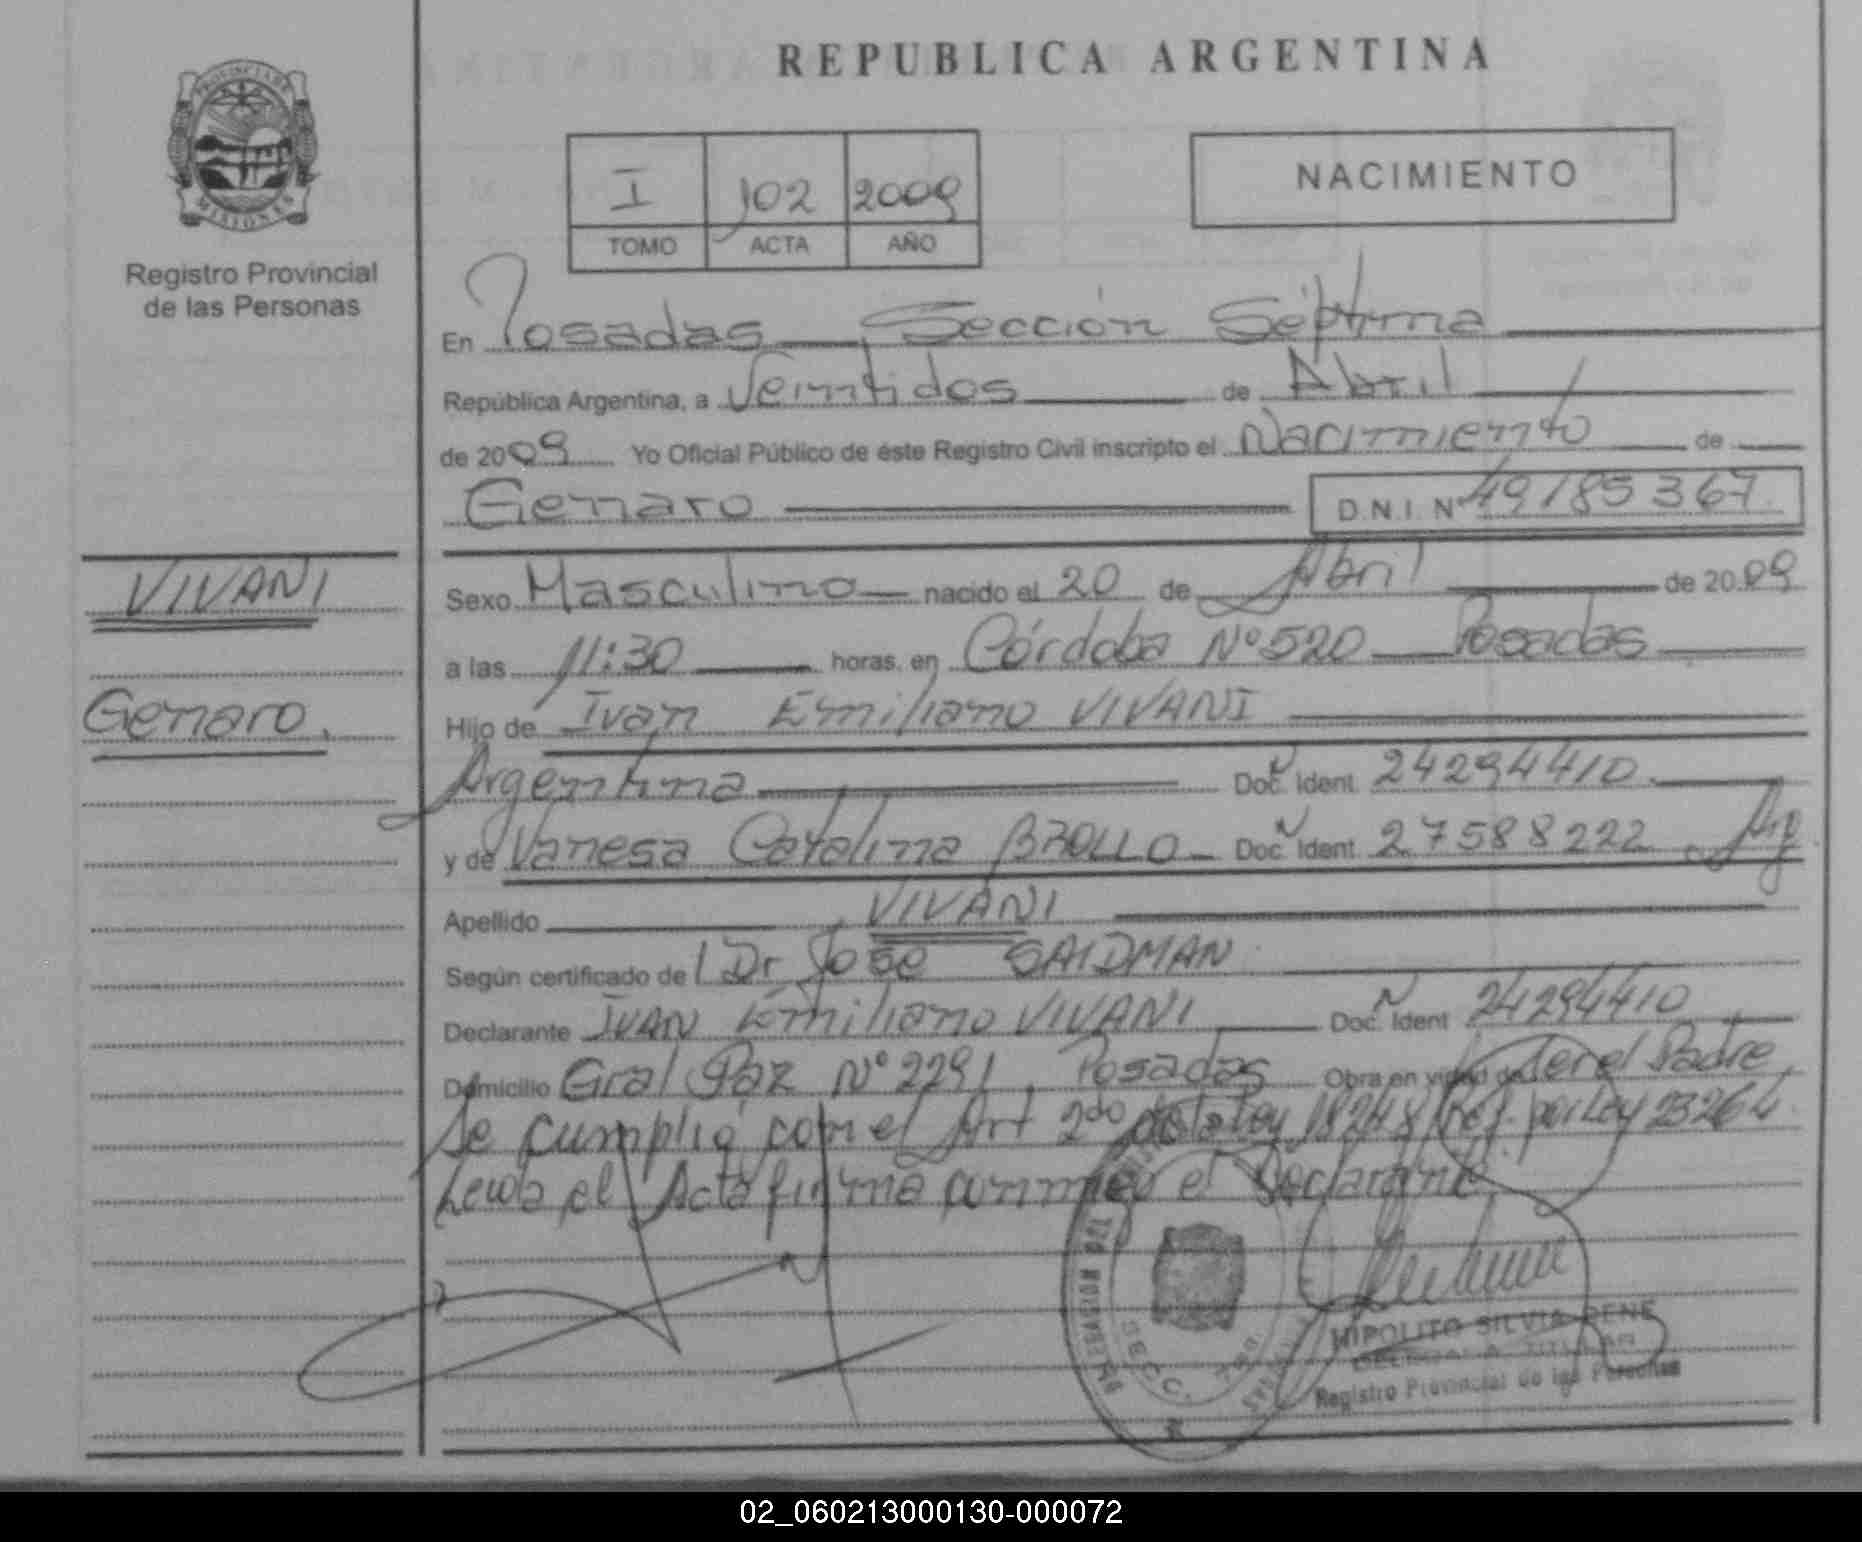 REPUBLICA ARGENTINA
PROVINCIA DE
MISIONES
Registro Provincial
de las Personas
I 102 2009
TOMO ACTA AÑO
NACIMIENTO
En Posadas Sección Séptima
República Argentina, a Veintidos de Abril
de 2009 Yo Oficial Público de éste Registro Civil inscripto el Nacimiento de
Genaro D.N.I. Nº 49185367.
VIVANI
Genaro.
Sexo Masculino nacido el 20 de Abril de 2009
a las 11:30 horas, en Córdoba Nº 520 Posadas
Hijo de Ivan Emiliano VIVANI
Argentina Doc. Ident. 24294410.
y de Vanesa Catalina BROLLO Doc. Ident. 27588222 Arg
Apellido VIVANI
Según certificado de Dr José SAIDMAN
Declarante IVAN Emiliano VIVANI Doc. Ident 24294410
Domicilio Gral Paz Nº 2291, Posadas Obra en virtud de ser el Padre
Se cumplió con el Art 2do de la Ley 18248 Ref. por Ley 23264.
Leida el Acta firma conmigo el Declarante
DELEGACION DEL
SECC. 7ma
HIPOLITO SILVIA RENE
DELEGADA TITULAR
Registro Provincial de las Personas
02_060213000130-000072